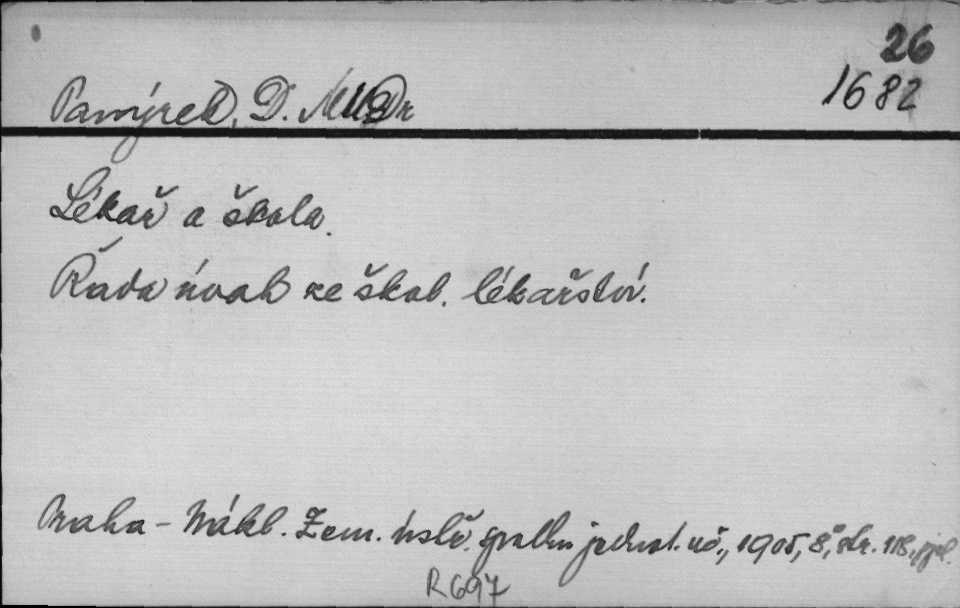 26
1682
Pamýrek, D. MUDr
Lékař a škola.
Řada úvah ze škol. lékařství.
Praha - Nákl. Zem. ústř. spolku jednot. uč., 1905, 8°, str. 118,
R 697